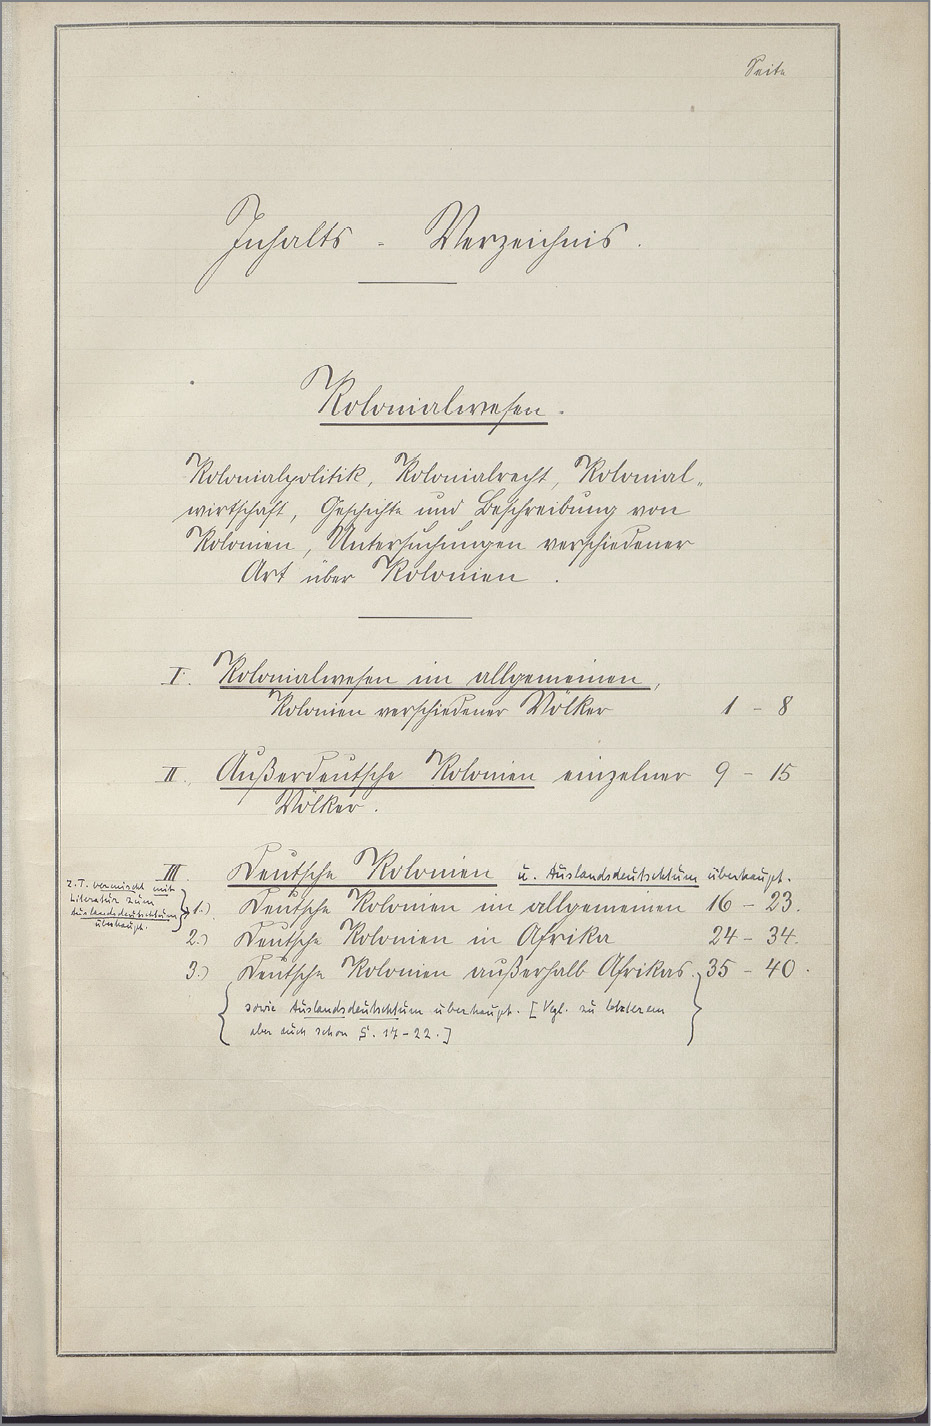 Seite
Inhalts - Verzeichnis.
Kolonialwesen.
Kolonialpolitik, Kolonialrecht, Kolonial-
wirtschaft, Geschichte und Beschreibung von
Kolonien, Untersuchungen verschiedener
Art über Kolonien.
I. Kolonialwesen im allgemeinen,
Kolonien verschiedener Völker 1 - 8
II. Außerdeutsche Kolonien einzelner 9 - 15
Völker.
III. Deutsche Kolonien u. Auslandsdeutschtum überhaupt.
z.T. vermischt mit
Literatur zum
Auslandsdeutschtum
überhaupt.
1.) Deutsche Kolonien im allgemeinen 16 - 23.
2.) Deutsche Kolonien in Afrika 24 - 34.
3.) Deutsche Kolonien außerhalb Afrikas. 35 - 40.
{ sowie Auslandsdeutschtum überhaupt. [Vgl. zu letzterem
aber auch schon S. 17-22.] }